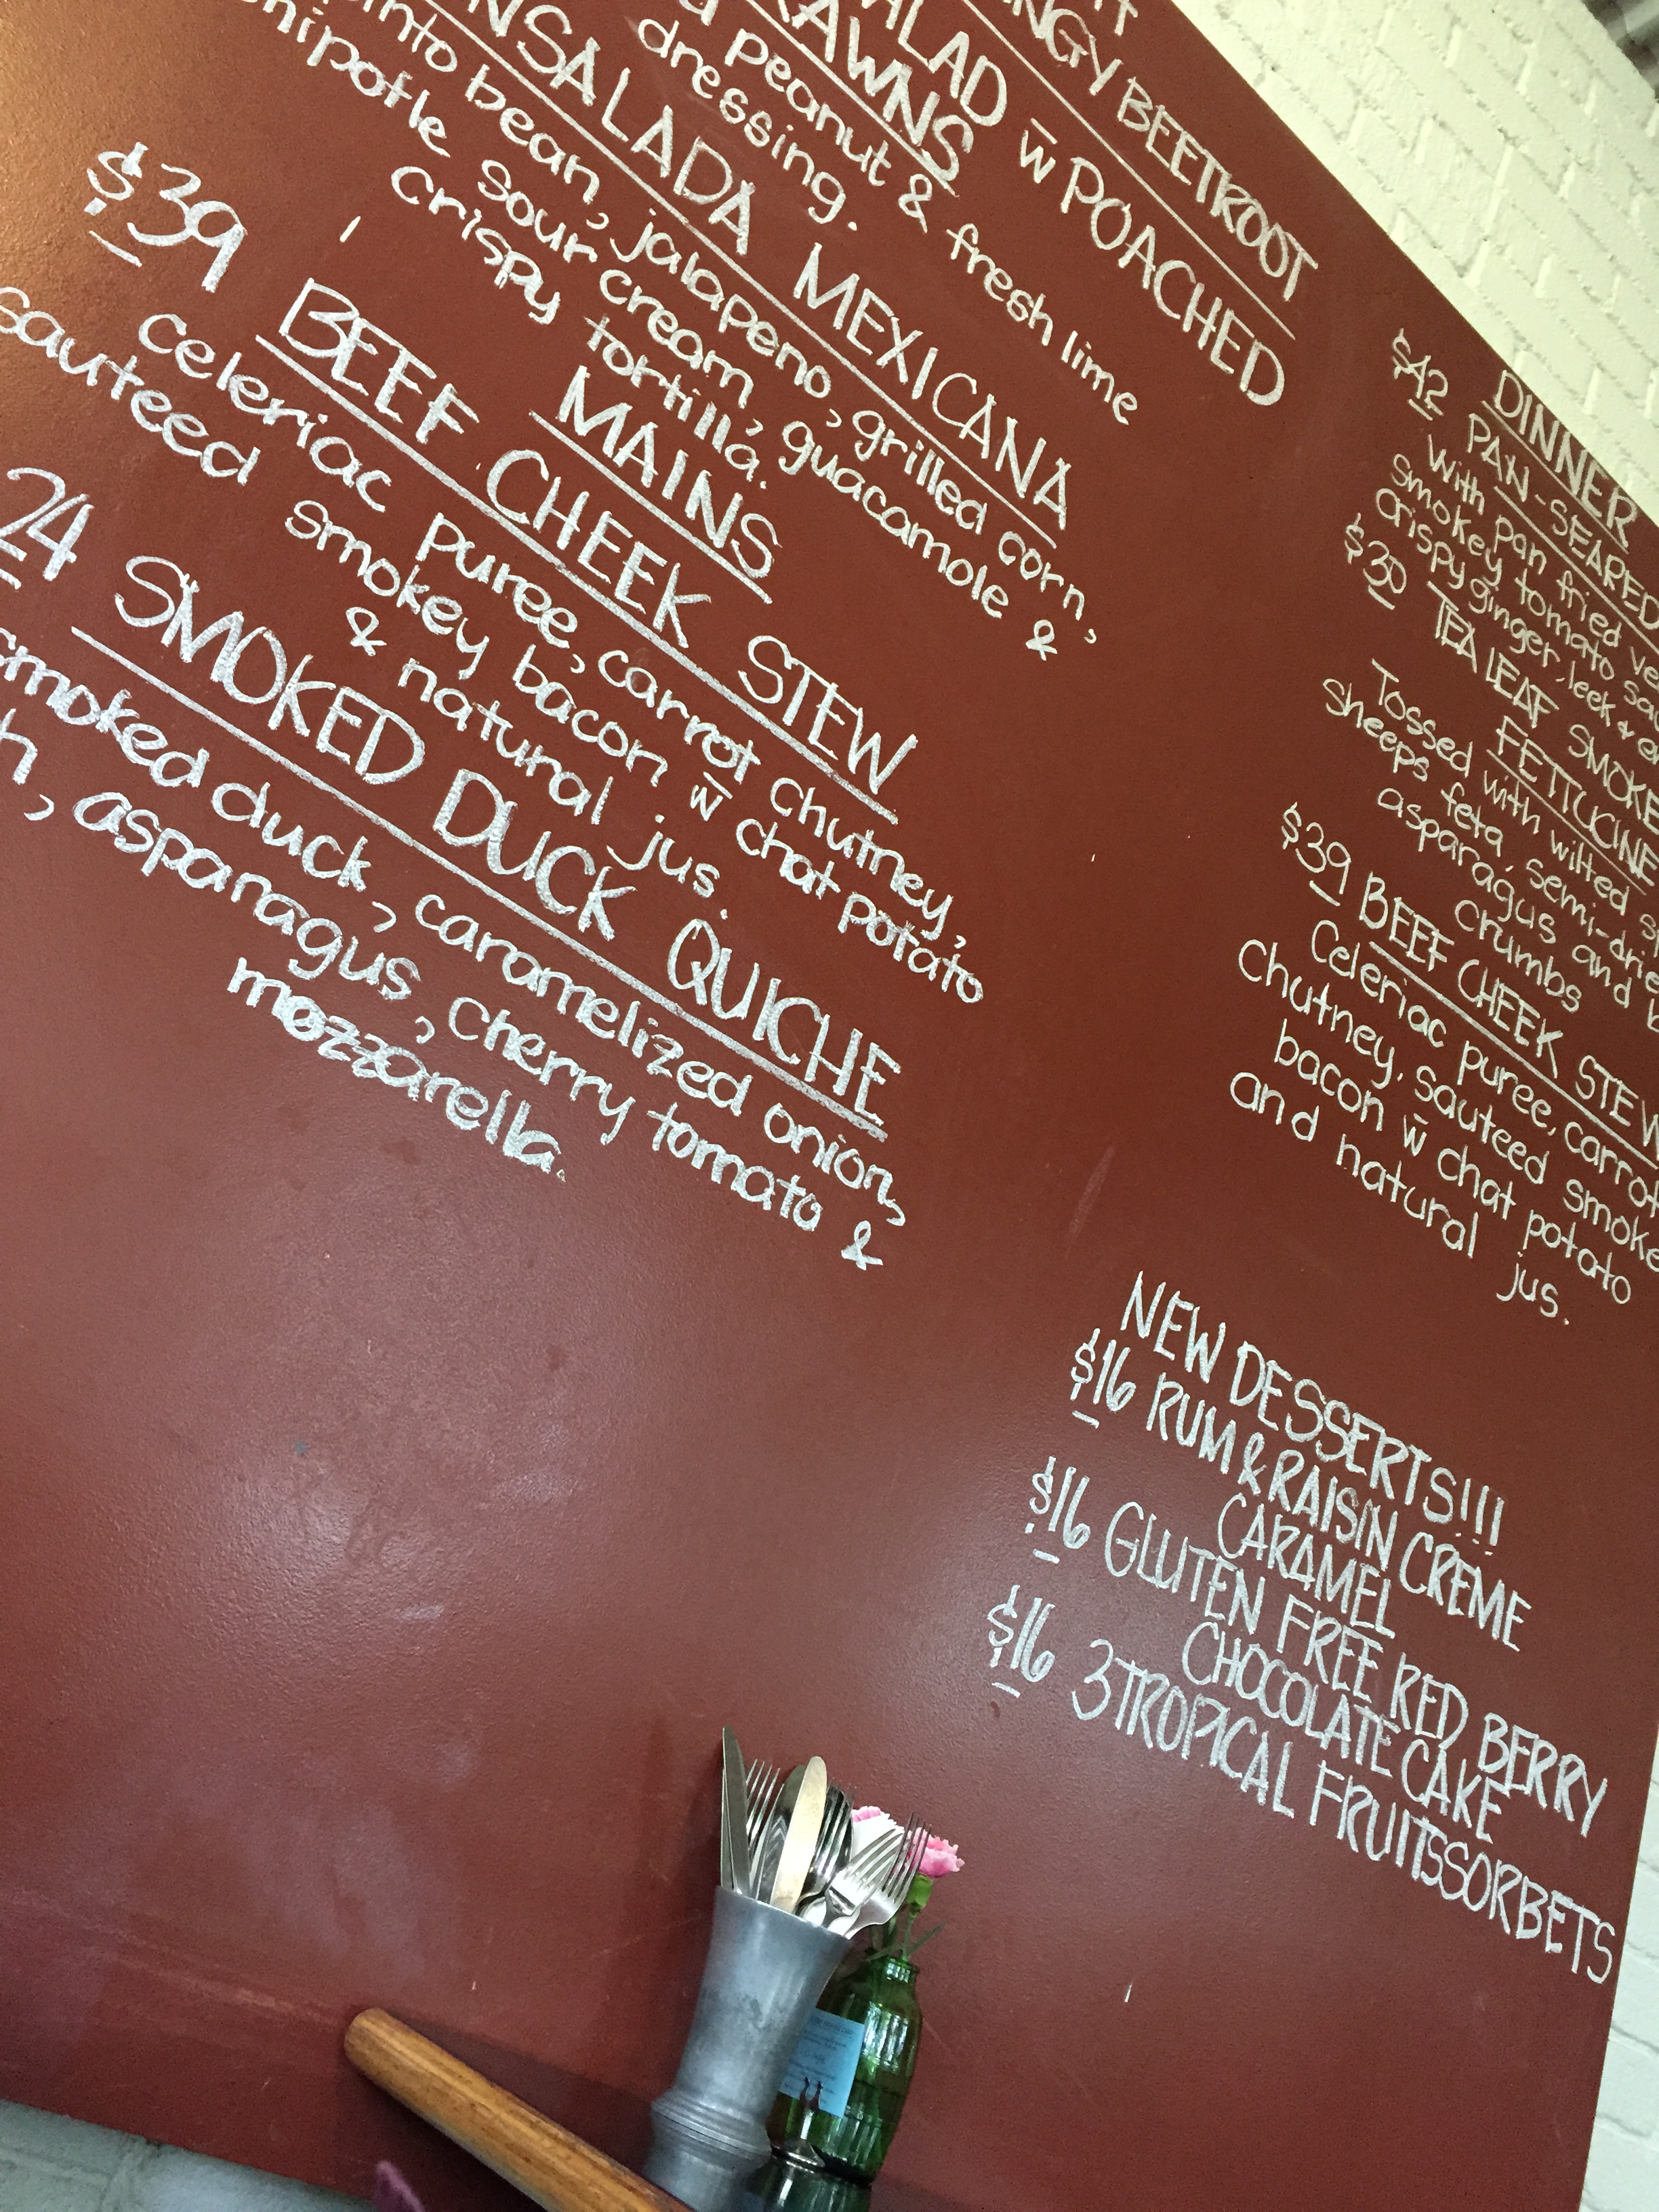 BEETROOT
SALAD w̄ POACHED
peanut & fresh lime
dressing.
MEXICANA
bean, jalapeno, grilled corn,
sour cream, guacamole &
crispy tortilla.
MAINS
$39 BEEF CHEEK STEW
celeriac puree, carrot chutney,
sauteed smokey bacon w̄ chat potato
& natural jus.
24 SMOKED DUCK QUICHE
smoked duck, caramelized onion,
asparagus, cherry tomato &
mozzarella.
DINNER
$42 PAN-SEARED
With pan fried
smokey tomato
crispy ginger, leek &
$30 TEA LEAF
FETTUCINE
Tossed with wilted
sheeps feta, semi-
asparagus and
crumbs
$39 BEEF CHEEK STEW
Celeriac puree, carrot
Chutney, sauteed
bacon w̄ chat potato
and natural jus.
NEW DESSERTS!!!
$16 RUM & RAISIN CREME
CARAMEL
$16 GLUTEN FREE RED BERRY
CHOCOLATE CAKE
$16 3 TROPICAL FRUITS SORBETS